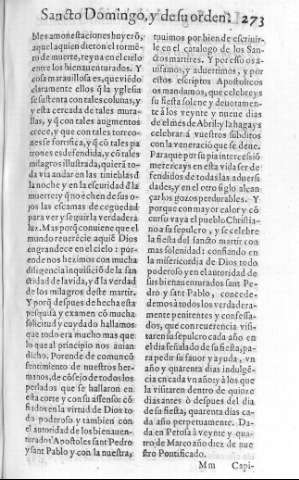 Sancto Domingo, y de su orden. 273
bles amonestaciones huyerõ,
aquel a quien dieron el tormẽ-
to de muerte, reyna en el cielo
entre los bienauenturados. Y
cosa marauillosa es, que viẽdo
claramente ellos q̃ la yglesia
se sustenta con tales colunas, y
y esta cercada de tales mura-
llas, y q̃ con tales augmentos
crece, y que con tales torreo-
nes se fortifica, y q̃ cõ tales pa
trones es defendida, y cõ tales
milagros illustrada, quierã to-
da via andar en las tinieblas d̃
la noche y en la escuridad d̃ la
muerte y q̃ no echen de sus o-
jos las escamas de ceguedad
para ver y seguir la verdadera
luz. Mas porq̃ conuiene que el
mundo reuerẽcie aquiẽ Dios
engrandece en el cielo: por-
ende nos hezimos con mucha
diligencia inquisiciõ de la san
ctidad de la vida, y d̃ la verdad
de los milagros deste martir.
Y porq̃ despues de hecha esta
pesquisa y examen cõ mucha
solicitud y cuydado hallamos
que todo era mucho mas que
lo que al principio nos auian
dicho. Porende de comun cõ
sentimiento de nuestros her-
manos, de cõsejo de todos los
perlados que se hallaron en
esta corte y con su assenso: cõ
fiados en la virtud de Dios to
da poderosa y tambien con
el autoridad de los bienauen-
turados Apostoles sant Pedro
y sant Pablo y con la nuestra,
tuuimos por bien de escriuir-
le en el catalogo de los San-
ctos martires. Y por esso os a-
uisamos, y aduertimos, y por
estos escriptos Apostolicos
os mandamos, que celebreys
su fiesta solene y deuotamen-
te a los veynte y nueue dias
de el mes de Abril y la hagays
celebrar a vuestros subditos
con la veneraciõ que se deue.
Para que por su pia intercessiõ
merezcays en esta vida ser de-
fendidos de todas las aduersi
dades, y en el otro siglo alcan
çarlos gozos perdurables. Y
porque con mayor calor y cõ
curso vaya el pueblo Christia-
no a su sepulcro, y se celebre
la fiesta del sancto martir con
mas solenidad: confiando en
la misericordia de Dios todo
poderoso y en el autoridad de
sus bienauenturados sant Pe-
dro y sant Pablo, concede-
mos a todos los verdadera-
mente penitentes y confessa-
dos, que con reuerencia visi-
taren su sepulcro cada año en
el dia señalado de su fiesta, pa-
ra pedir su fauor y ayuda, vn
año y quarenta dias indulgẽ-
cia en cada vn año: y a los que
la visitaren dentro de quinze
dias antes o despues del dia
de su fiesta, quarenta dias ca-
da año perpetuamente. Da-
da en Perusa a veynte y quatro
de Março año diez de nue-
stro Pontificado.
Mm Capi-